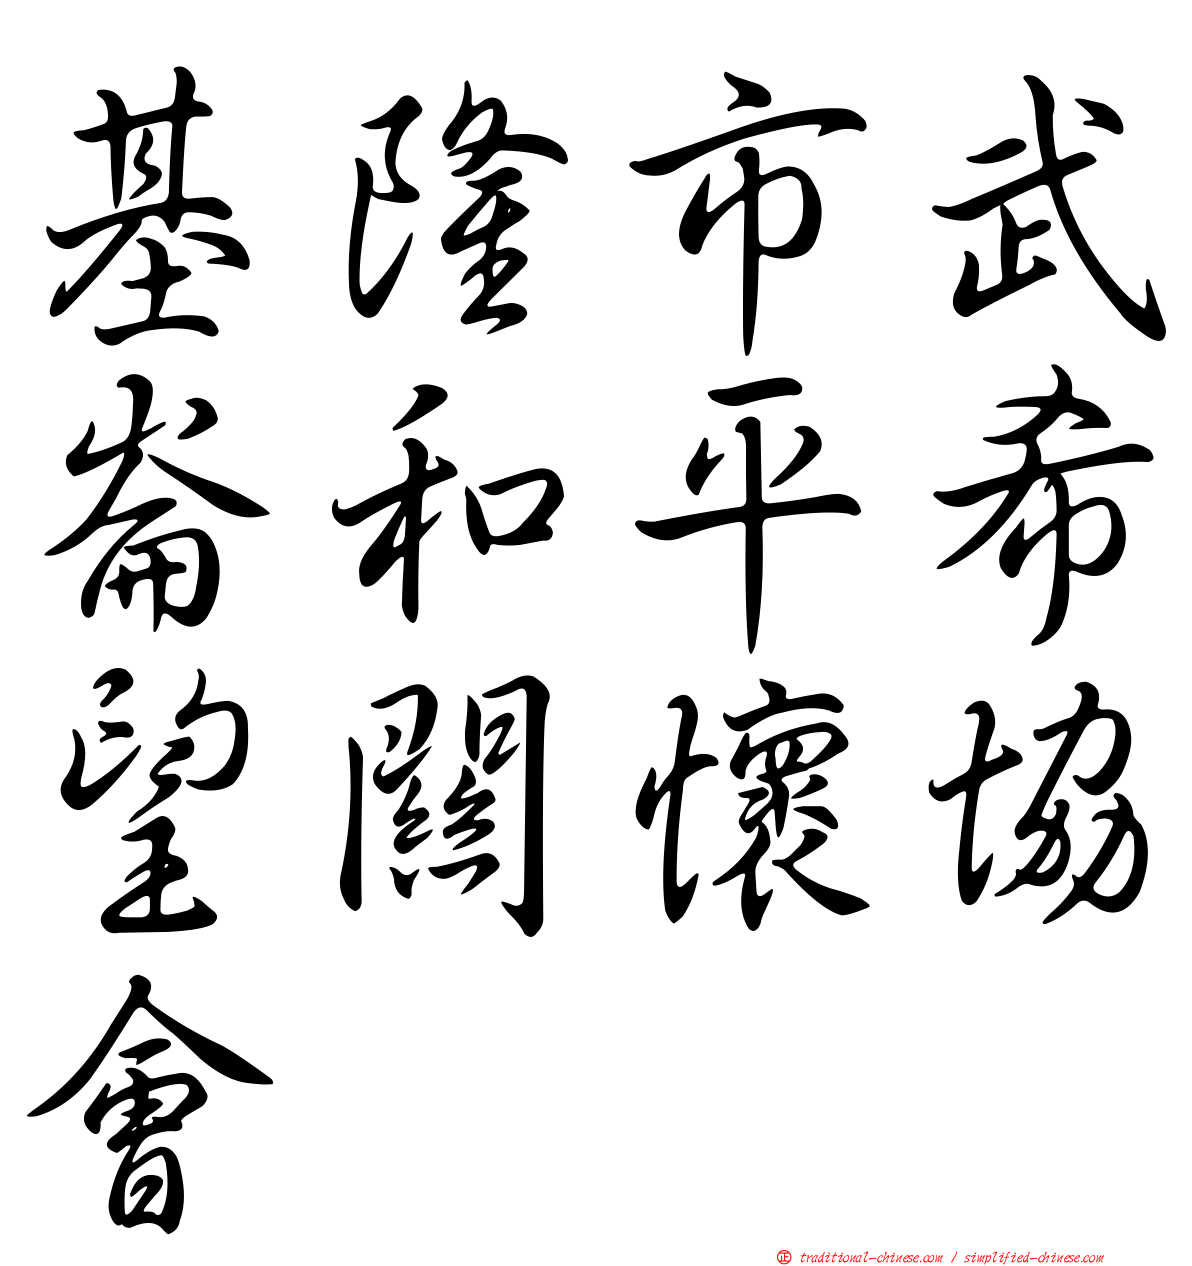 基隆市武
崙和平希
望關懷協
會
㊣ traditional-chinese.com / simplified-chinese.com